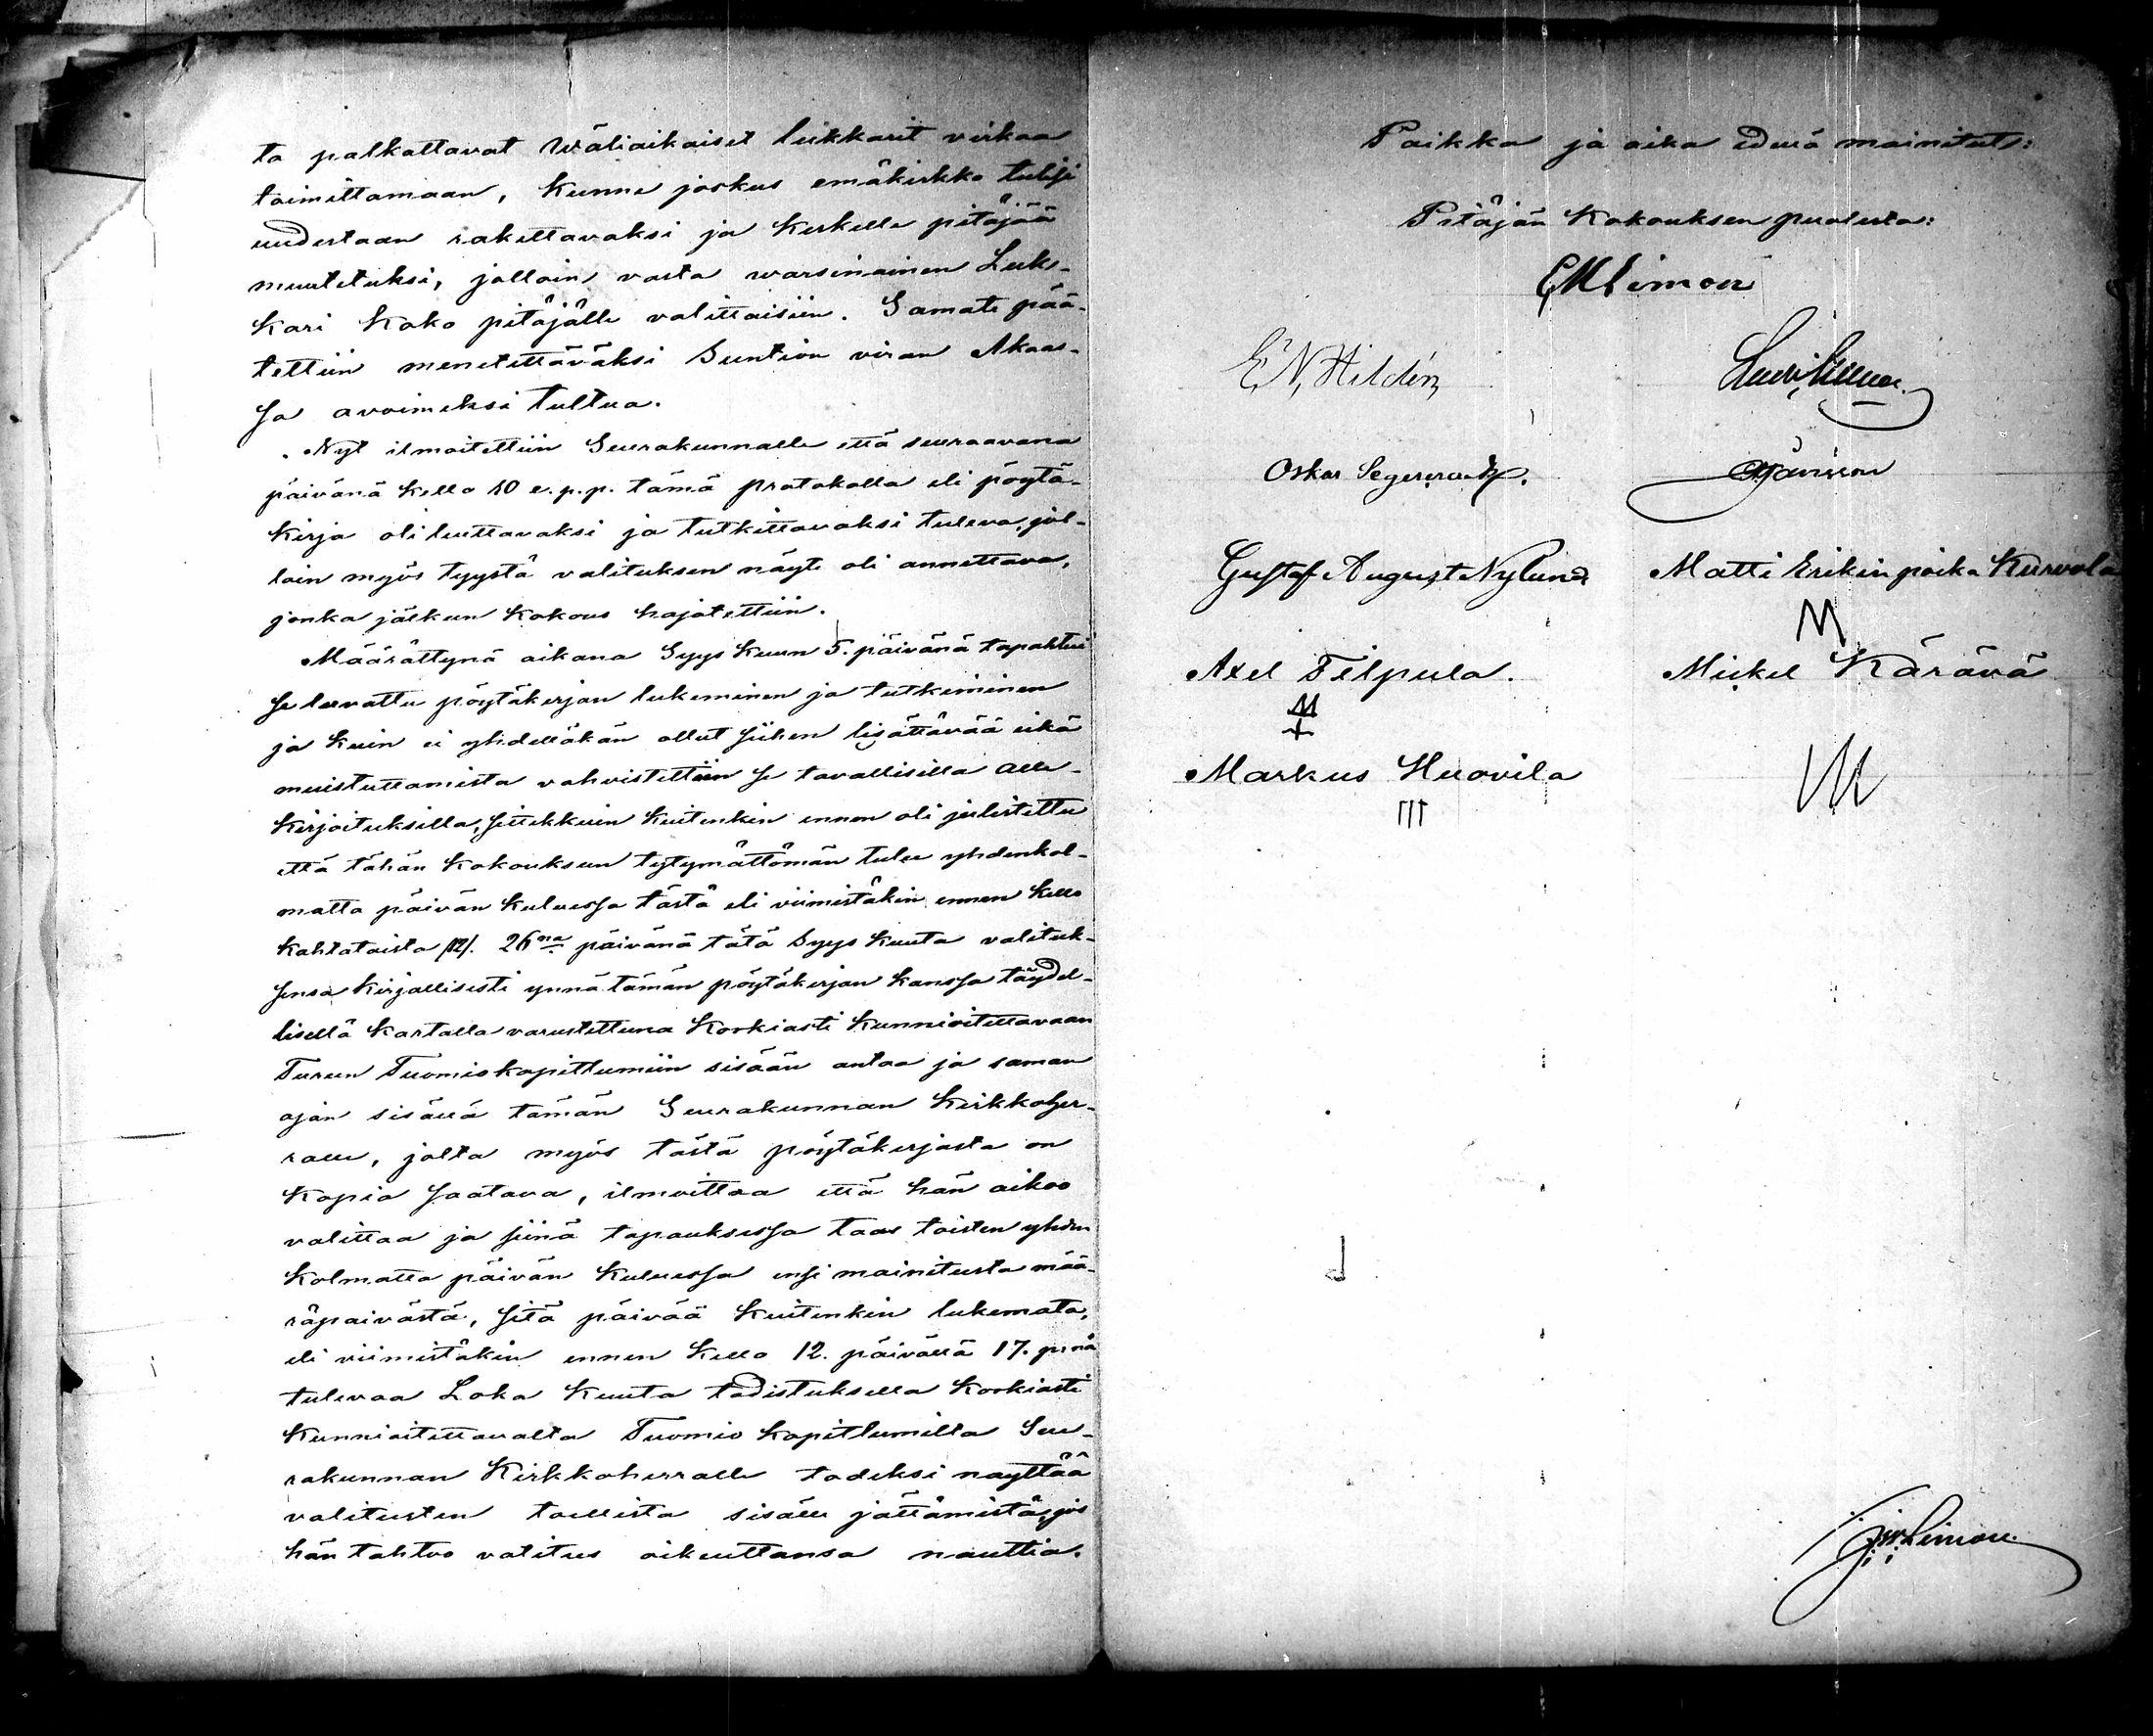 ta palkattavat Wäliaikaiset lukkarit virkaa
toimittamaan, kunne joskus emäkirkko tulisi
uudestaan rakettavaksi ja keskelle pitäjää
muutetuksi, jolloin vasta warsinainen Luk-
kari koko pitäjälle valittaisiin. Samate pää-
tettiin menetettäväksi Suntion viran Akaas-
sa avoimeksi tultua.
Nyt ilmoitettiin Seurakunnalle että seuraavana
päivänä kello 10 e.p.p. tämä protokolla eli pöytä-
kirja oli luettavaksi ja tutkittavaksi tuleva, jol-
loin myös tyystä valituksen näyte oli annettava,
jonka jälkeen kokous hajotettiin.
Määrättynä aikana Syys kuun 5. päivänä tapahtui
se luvattu pöytäkirjan lukeminen ja tutkiminen
ja kuin ei yhdelläkän ollut siihen lisättävää eikä
muistuttamista vahvistettiin se tavallisilla alle-
kirjoituksilla, sittekkuin kuitenkin ennen oli julistettu
että tähän kokouksen tytymättömän tulee yhdenkol-
matta päivän kuluessa tästä eli viimistäkin ennen kello
kahtatoista /12/. 26na päivänä tätä Syys kuuta valituk-
sensa kirjallisesti ynnä tämän pöytäkirjan kanssa täydel-
lisellä kartalla varustettuna korkiasti kunnioitettavaan
Turun Tuomiokapittumiin sisään antaa ja saman
ajan sisällä tämän Seurakunnan Kirkkoher-
ralle, jolta myös tästä pöytäkirjasta on
kopia saatava, ilmoittaa että hän aikoo
valittaa ja siinä tapauksessa taas toisten yhden
kolmatta päivän kuluessa ensi mainitusta mää-
räpaivästä, sitä päivää kuitenkin lukemata,
eli viimistäkin ennen kello 12. päivällä 17. p:nä
tulevaa Loka kuuta todistuksella korkiasti
kunnioitettavalta Tuomio kapitlumilta Seu-
rakunnan Kirkkoherralle todeksi nayttää
valitusten toellista sisälle jättämistä, jos
hän tahtoo valitus oikeuttansa nauttia.
Paikka ja aika edellä mainitut:
Pitäjän Kokouksen puolesta:
Limon
E. N. Hildén
Oskar
Gustaf August Nylund Matti Erikin poika Kurvola
Axel Filpula. Mickel Kärävä
Markus Huovila
Limon